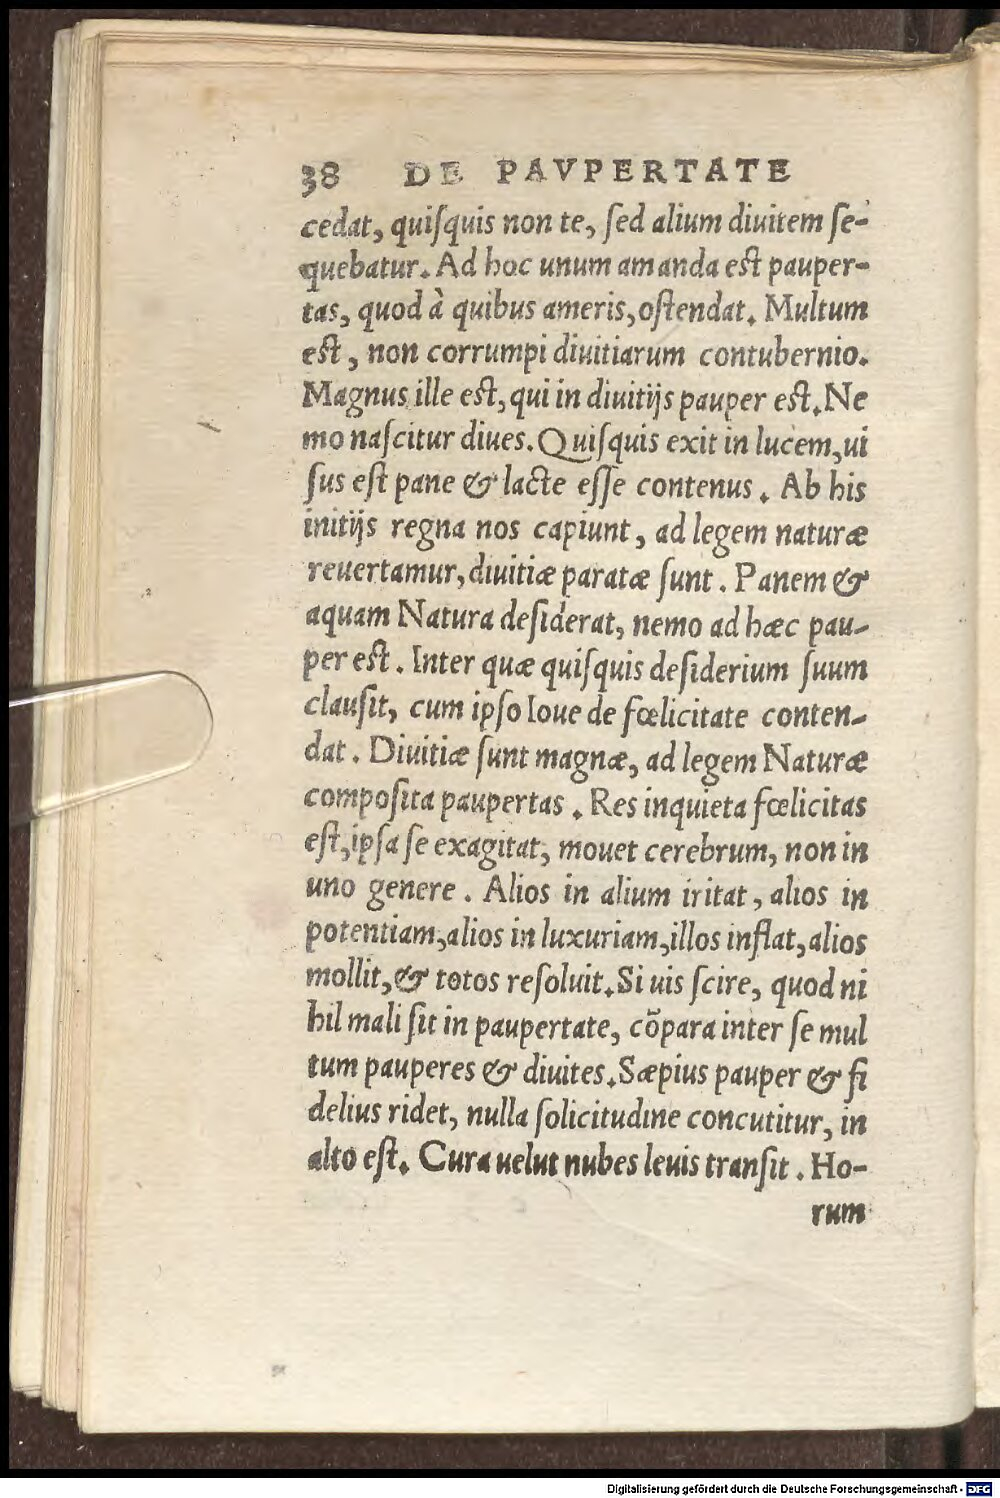 38 DE PAVPERTATE
cedat, quiſquis non te, ſed alium diuitem ſe-
quebatur. Ad hoc unum amanda eſt pauper-
tas, quod à quibus ameris, oſtendat. Multum
eſt, non corrumpi diuitiarum contubernio.
Magnus ille eſt, qui in diuitijs pauper eſt. Ne
mo naſcitur diues. Quiſquis exit in lucem, ui
ſus eſt pane & lacte eſſe contenus. Ab his
initijs regna nos capiunt, ad legem naturæ
reuertamur, diuitiæ paratæ ſunt. Panem &
aquam Natura deſiderat, nemo ad hæc pau-
per eſt. Inter quæ quiſquis deſiderium ſuum
clauſit, cum ipſo Ioue de fœlicitate conten-
dat. Diuitiæ ſunt magnæ, ad legem Naturæ
compoſita paupertas. Res inquieta fœlicitas
eſt, ipſa ſe exagitat, mouet cerebrum, non in
uno genere. Alios in alium iritat, alios in
potentiam, alios in luxuriam, illos inflat, alios
mollit, & totos reſoluit. Si uis ſcire, quod ni
hil mali ſit in paupertate, cõpara inter ſe mul
tum pauperes & diuites. Sæpius pauper & fi
delius ridet, nulla ſolicitudine concutitur, in
alto eſt. Cura uelut nubes leuis tranſit. Ho-
rum
Digitalisierung gefördert durch die Deutsche Forschungsgemeinschaft - DFG